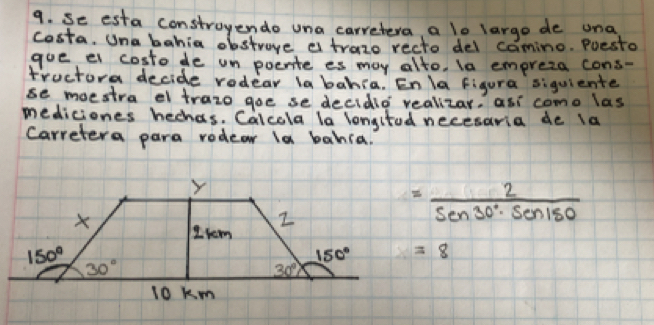 9. Se esta construyendo una carretera, a lo largo de una
costa. Una bahia obstruye el trazo recto del camino. Puesto
que el costo de un puente es muy alto, la empreza cons-
tructora decide rodear la bahía. En la figura siguiente
se muestra el trazo que se decidió realizar, así como las
mediciones hechas. Calcula la longitud necesaria de la
carretera para rodear la bahía.
Y
X
2 km
Z
150°
30°
30°
150°
10 km
= 2 / Sen 30° · Sen 150
= 8